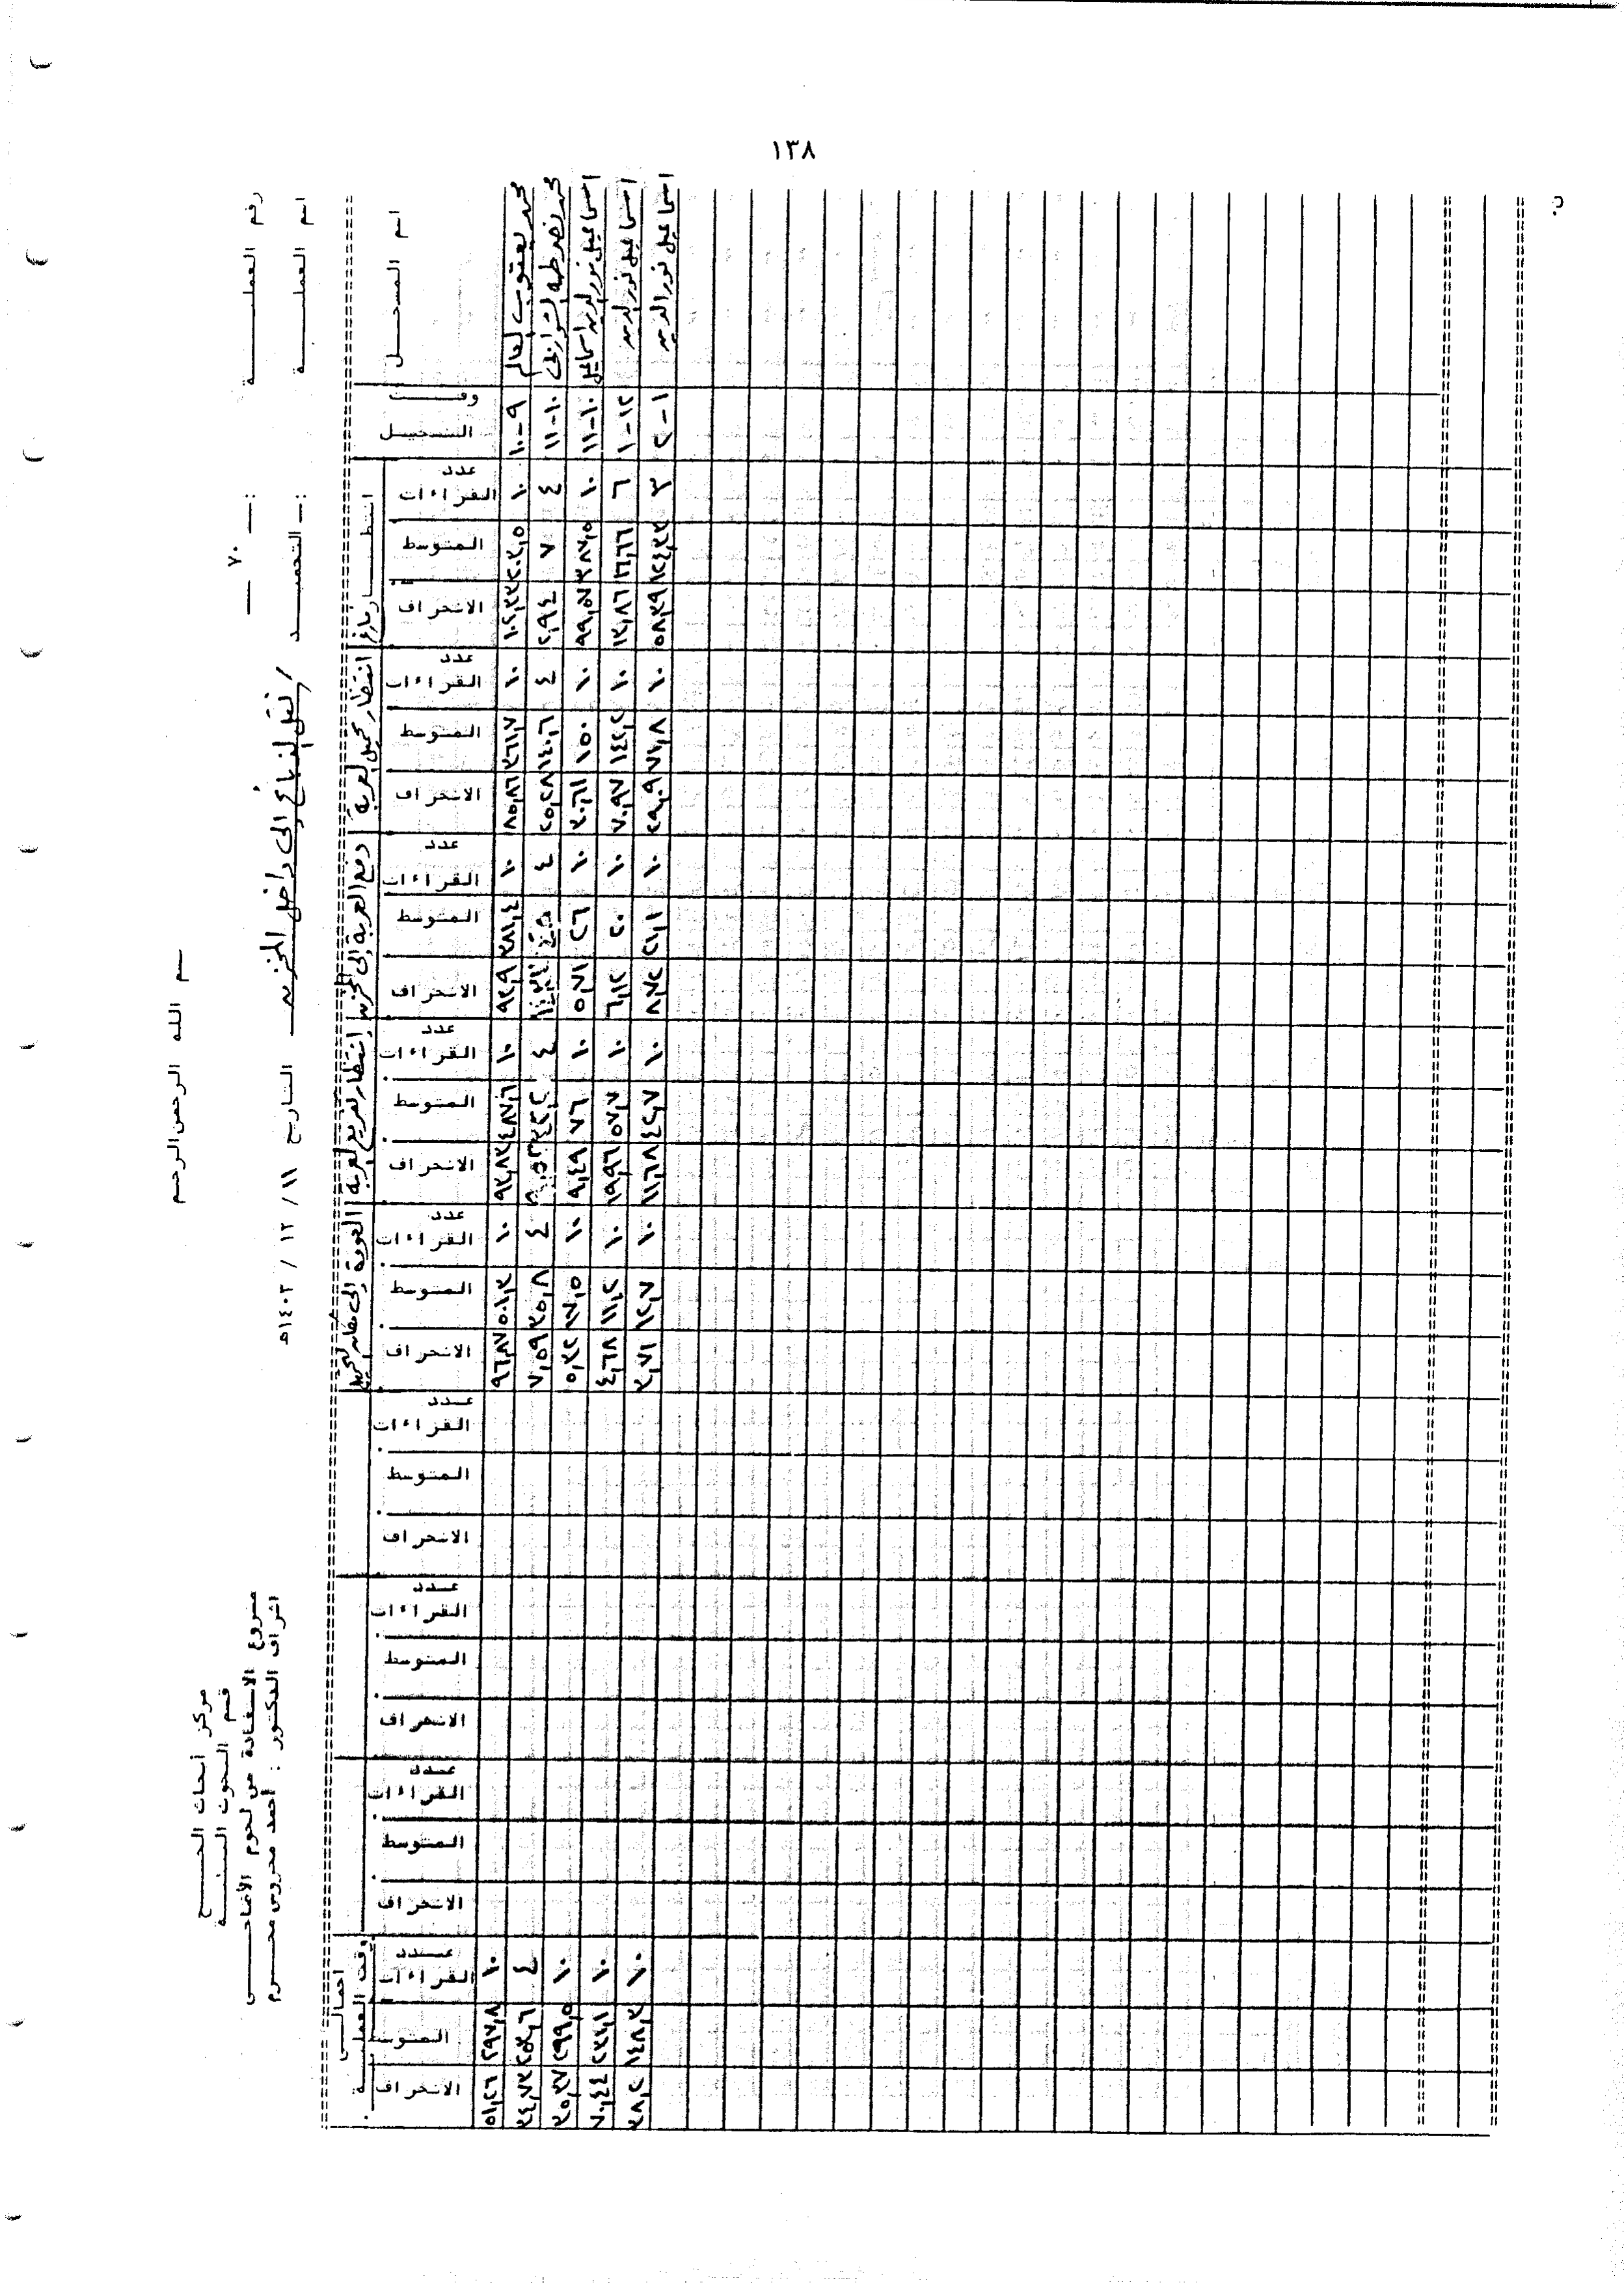 ١٣٨
بسم الله الرحمن الرحيم
مركز أبحاث الحج
قسم البحوث البيئية
مشروع الاستفادة من لحوم الأضاحي
اشراف الدكتور : أحمد محروس محرم
رقم العملية :ـ ٧٠
اسم العملية :ـ التجميد / نقل الذبائح إلى داخل المخزن التاريخ ١١ / ١٢ / ١٤٠٣هـ
اسم المسجل | وقت التسجيل | انتظار فارغ | انتظار تحميل العربة | دفع العربة إلى المخزن | انتظار تفريغ العربة | العودة إلى مكان التحميل | اجمالي وقت العملية
عدد القراءات | المتوسط | الانحراف | عدد القراءات | المتوسط | الانحراف | عدد القراءات | المتوسط | الانحراف | عدد القراءات | المتوسط | الانحراف | عدد القراءات | المتوسط | الانحراف | عدد القراءات | المتوسط | الانحراف | عدد القراءات | المتوسط | الانحراف | عدد القراءات | المتوسط | الانحراف | عدد القراءات | المتوسط | الانحراف
محمد يعقوب العالم | ٩-١٠ | ١٠ | ٢٠٣,٥ | ١٠٢,٢٢ | ١٠ | ٣٦١,٧ | ٨٥,٨٦ | ١٠ | ٣٨١,٤ | ٩٢,٩ | ١٠ | ٤٨٧,٦ | ٩٢,٨٣ | ١٠ | ٥٠١,٣ | ٩٦,٨٧ | ١٠ | ٢٩٧,٨ | ٥١,٢٦
١٠-١١ | ٤ | ٧ | ٢,٩٤ | ٤ | ١٤٠,٦ | ٢٥,٢٨ | ٤ | ٤ | ٤ | ٣٥,٨ | ٧,٥٩ | ٤ | ٢٥٢,٦ | ٢٤,٧٢
اسماعيل نور الدين اسماعيل | ١٠-١١ | ١٠ | ٣٨٧,٥ | ٩٩,٥٧ | ١٠ | ١٥٠ | ٣٠,٦١ | ١٠ | ٢٦ | ٥,٧١ | ١٠ | ٧٦ | ٩,٤٩ | ١٠ | ١٧,٥ | ٥,٢٢ | ١٠ | ٢٩٩,٥ | ٣٥,٢٧
اسماعيل نور الدين | ١٢-١ | ٦ | ٢٦,٦٦ | ١٢,٨٦ | ١٠ | ١٤٢,٢ | ٧٠,٩٧ | ١٠ | ٢٠ | ٦,١٢ | ١٠ | ٥٧,٧ | ١٩,٩٦ | ١٠ | ١١,٢ | ٤,٦٨ | ١٠ | ٢٣١,١ | ٧٠,٤٤
اسماعيل نور الدين | ١-٢ | ٣ | ١٢٤,٣٣ | ٥٨,٢٩ | ١٠ | ٧١,٨ | ٢٩,٠٩ | ١٠ | ٢١,١ | ٨,٧٢ | ١٠ | ٤٢,٧ | ١١,٦٨ | ١٠ | ١٢,٧ | ٣,٧١ | ١٠ | ١٤٨,٣ | ٣٨,٢